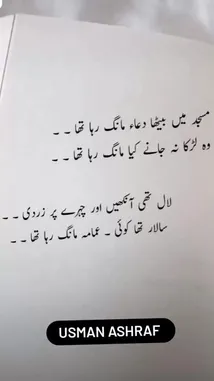 مسجد میں بیٹھا دعاء مانگ رہا تھا ۔ ۔
وہ لڑکا نہ جانے کیا مانگ رہا تھا ۔ ۔
لال تھی آنکھیں اور چہرے پر زردی ۔ ۔
سالار تھا کوئی ۔ عمامہ مانگ رہا تھا ۔ ۔
USMAN ASHRAF